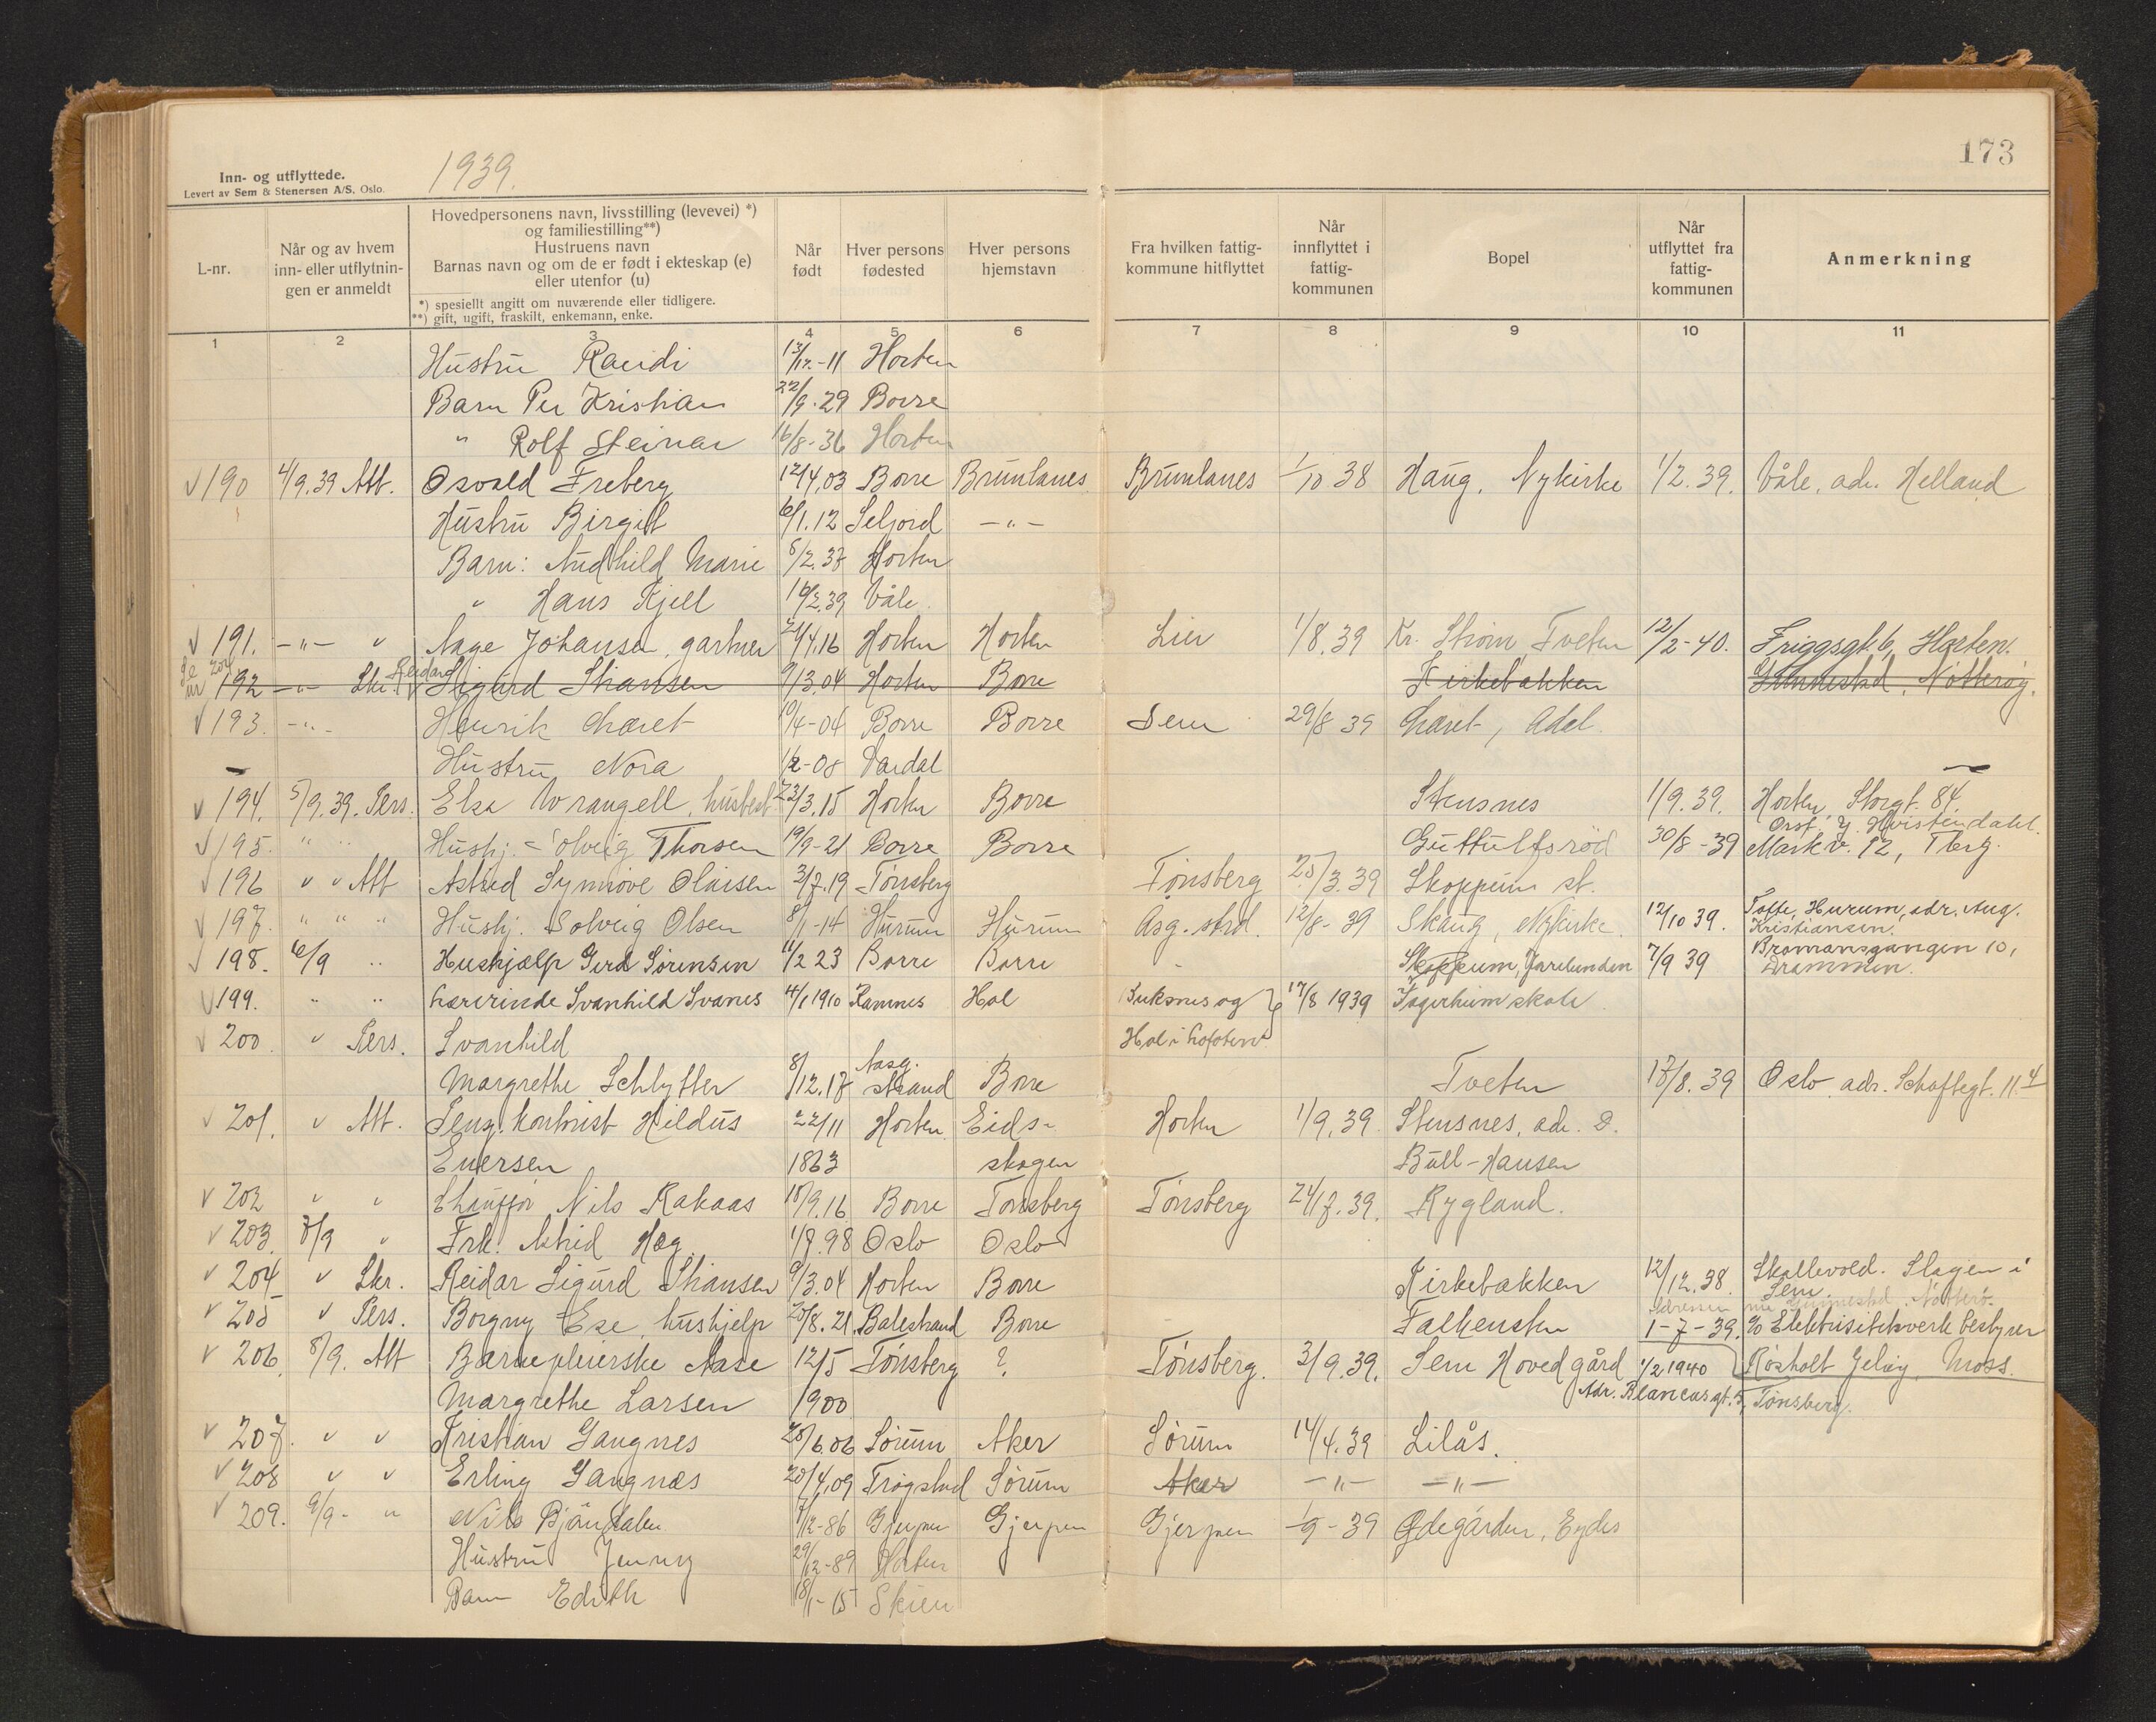 173
1939.
Inn- og utflyttede.
Levert av Sem & Stenersen A/S. Oslo.
L-nr.
Når og av hvem inn- eller utflytnin-gen er anmeldt
Hovedpersonens navn, livsstilling (levevei) *)
og familiestilling**)
Hustruens navn
Barnas navn og om de er født i ekteskap (e)
eller utenfor (u)
*) spesiellt angitt om nuværende eller tidligere.
**) gift, ugift, fraskilt, enkemann, enke.
Når født
Hver persons fødested
Hver persons hjemstavn
Fra hvilken fattig-kommune hitflyttet
Når innflyttet i fattig-kommunen
Bopel
Når utflyttet fra fattig-kommunen
Anmerkning
1 2 3 4 5 6 7 8 9 10 11
Hustru Randi 13/12.-11 Horten
Barn Per Kristian 22/9.29 Borre
" Rolf Steinar 16/8-36 Horten
190 4/9.39 Att. Osvald Freberg 12/4.03 Borre Brunlanes Brunlanes 1/10 38 Haug, Nykirke 1/2.39. Våle, adr. Helland
Hustru Birgit 6/1.12 Seljord -"-
Barn: Audhild Marie 5/2.37 Horten
" Hans Kjell 16/2.39 Våle
191. -"- " Aage Johansen, gartner 21/4.16 Horten Horten Lier 1/8.39 Kr. Strøm, Tveten 12/2-40. Friggsgt. 6, Horten.
Se nr 204
192 -"- Skr. Reidar Sigurd Stiansen 9/3.04 Horten Borre Kirkebakken Gunnestad, Nøtterøy.
193. -"- Henrik Løret 10/4-04 Borre Borre Sem 29/8 39 Løret, Adal.
Hustru Nora 1/2-08 Vardal
194. 5/9.39. Pers. Elsa Wrangell, husbest. 23/3.15 Horten Borre Stensnes 1/9.39. Horten, Storgt. 84.
195. " " Hushj. Solveig Thorsen 19/9-21 Borre Borre Guttulfsrød 30/8-39 Orsf. Y. Hvistendahl. Markv. 12, Tbrg.
196 " " Att Astrid Synnøve Olaisen 3/7.19 Tønsberg Tønsberg 25/3.39 Skoppum st.
197. " " " Hushj. Solveig Olsen 8/1-14 Hurum Hurum Asg. strd. 12/8-39 Skaug, Nykirke. 12/10 39. Tofte, Hurum, adr. Aug. Kristiansen.
198. 6/9 " Hushjælp Gerd Sørensen 4/2 23 Borre Borre - Skoppum, Jarelunden 7/9 39 Bromansgangen 10, Drammen.
199. " " Lærerinde Svanhild Svanes 4/1 1910 Ramnes Hol Buksnes og 17/8 1939 Fagerheim skole
200. " Pers. Svanhild Hol i Lofoten
Margrethe Schlytter 8/12.17 Aasg. strand Borre Tveten 17/8.39 Oslo adr. Schaftegt. 11 4
201. " Att. Pens. kontorist Hildus 22/11 Horten Eids- Horten 1/9.39. Stensnes, adr. D.
Eversen 1863 skogen Bull-Hansen
202 " " Chauffør Nils Rakaas 18/9.16 Borre Tønsberg Tønsberg 24/7.39. Rygland.
203. 7/9 " Frk. Astrid Høg 1/7.98 Oslo Oslo
204 " Skr. Reidar Sigurd Stiansen 9/3.04 Horten Borre Kirkebakken 12/12.38. Skallevold. Slagen i Sem.
Adressen nu Gunnestad. Nøtterø.
205 " Pers. Borgny Ese, hushjelp 25/8.21. Balestrand Borre Falkensten 1-7-39. c/o Elektrisitetsverk bestyrer
206. 8/9. Att Barnepleierske Aase 12/5 Tønsberg ? Tønsberg. 3/9.39. Sem Hovedgård 1/2 1940 Røsholt Jeløy Moss.
Margrethe Larsen 1900 Adr. Blancasgt. 5, Tønsberg.
207. " " Kristian Gangnes 28/6.06 Sørum Aker Sørum 14/4.39 Lilås.
208 " " Erling Gangnæs 20/4.09 Trøgstad Sørum Aker -"- -"-
209. 9/9- " Nils Bjåndalen 7/12-86 Gjerpen Gjerpen Gjerpen 1/9-39 Ødegården, Eydes
Hustru Jenny 29/12-89 Horten
Barn Edith 18/1-15 Skien